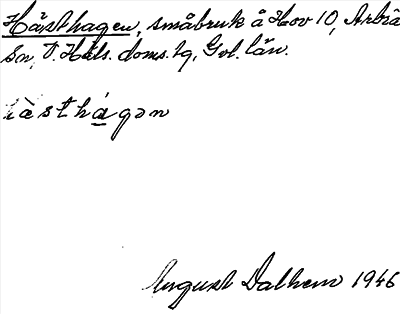 Hästhagen, småbruk å Hov 10, Arbrå
Sn, V. Häls. doms. hg, Gvl. län.
hàsthágən
August Dalhem 1946